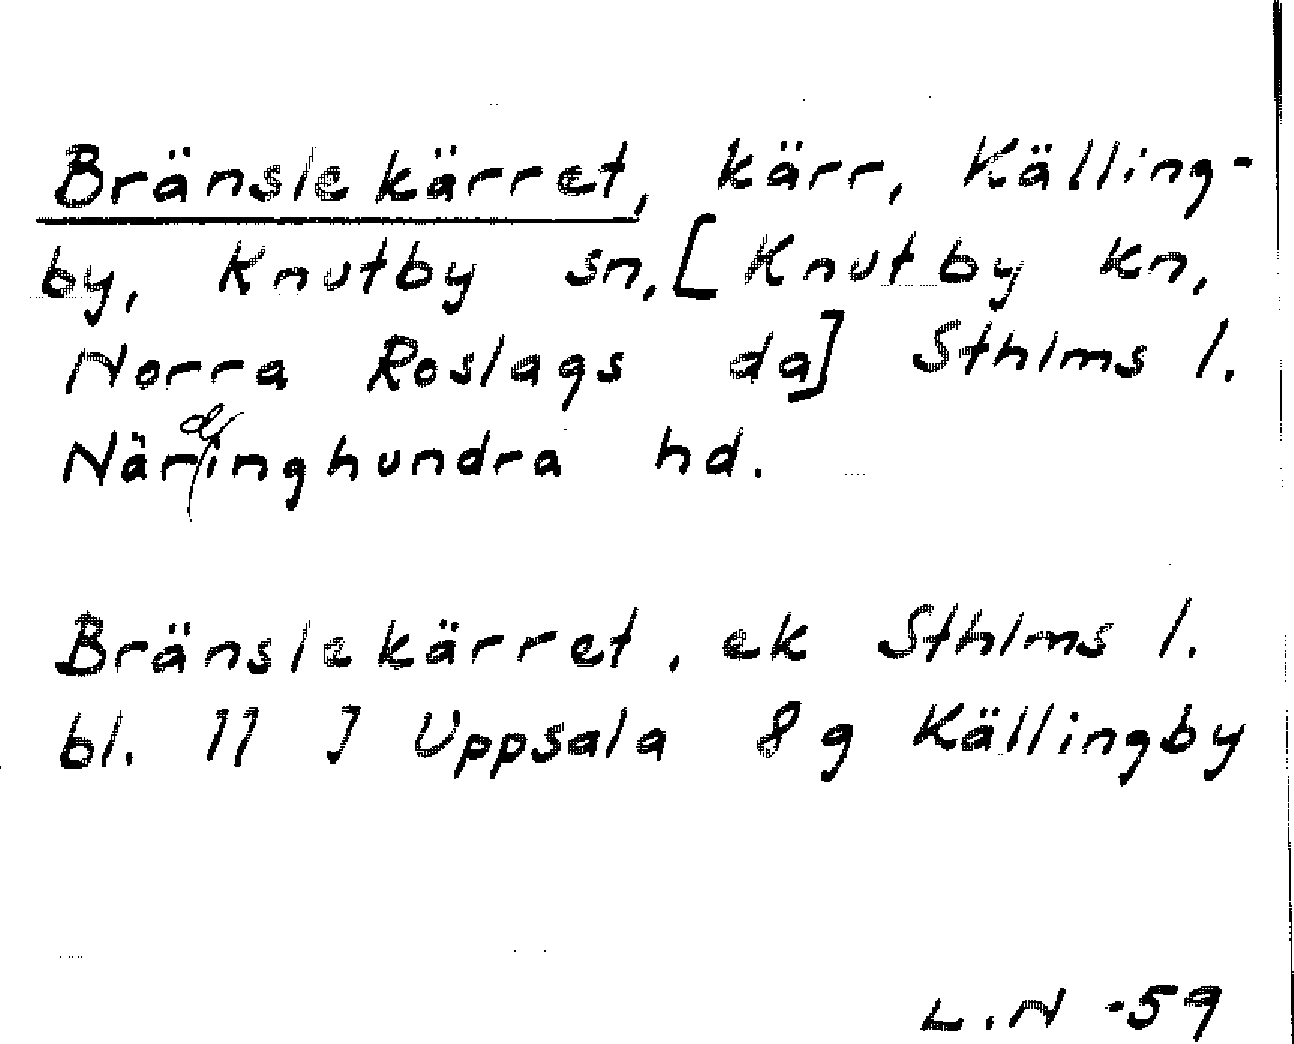 Bränslekärret, kärr, Källing-
by, Knutby sn, [Knutby kn,
Norra Roslags da] Sthlms l.
Närdinghundra hd.
Bränslekärret, ek Sthlms l.
bl. 11 J Uppsala 8 g Källingby
L.N -59